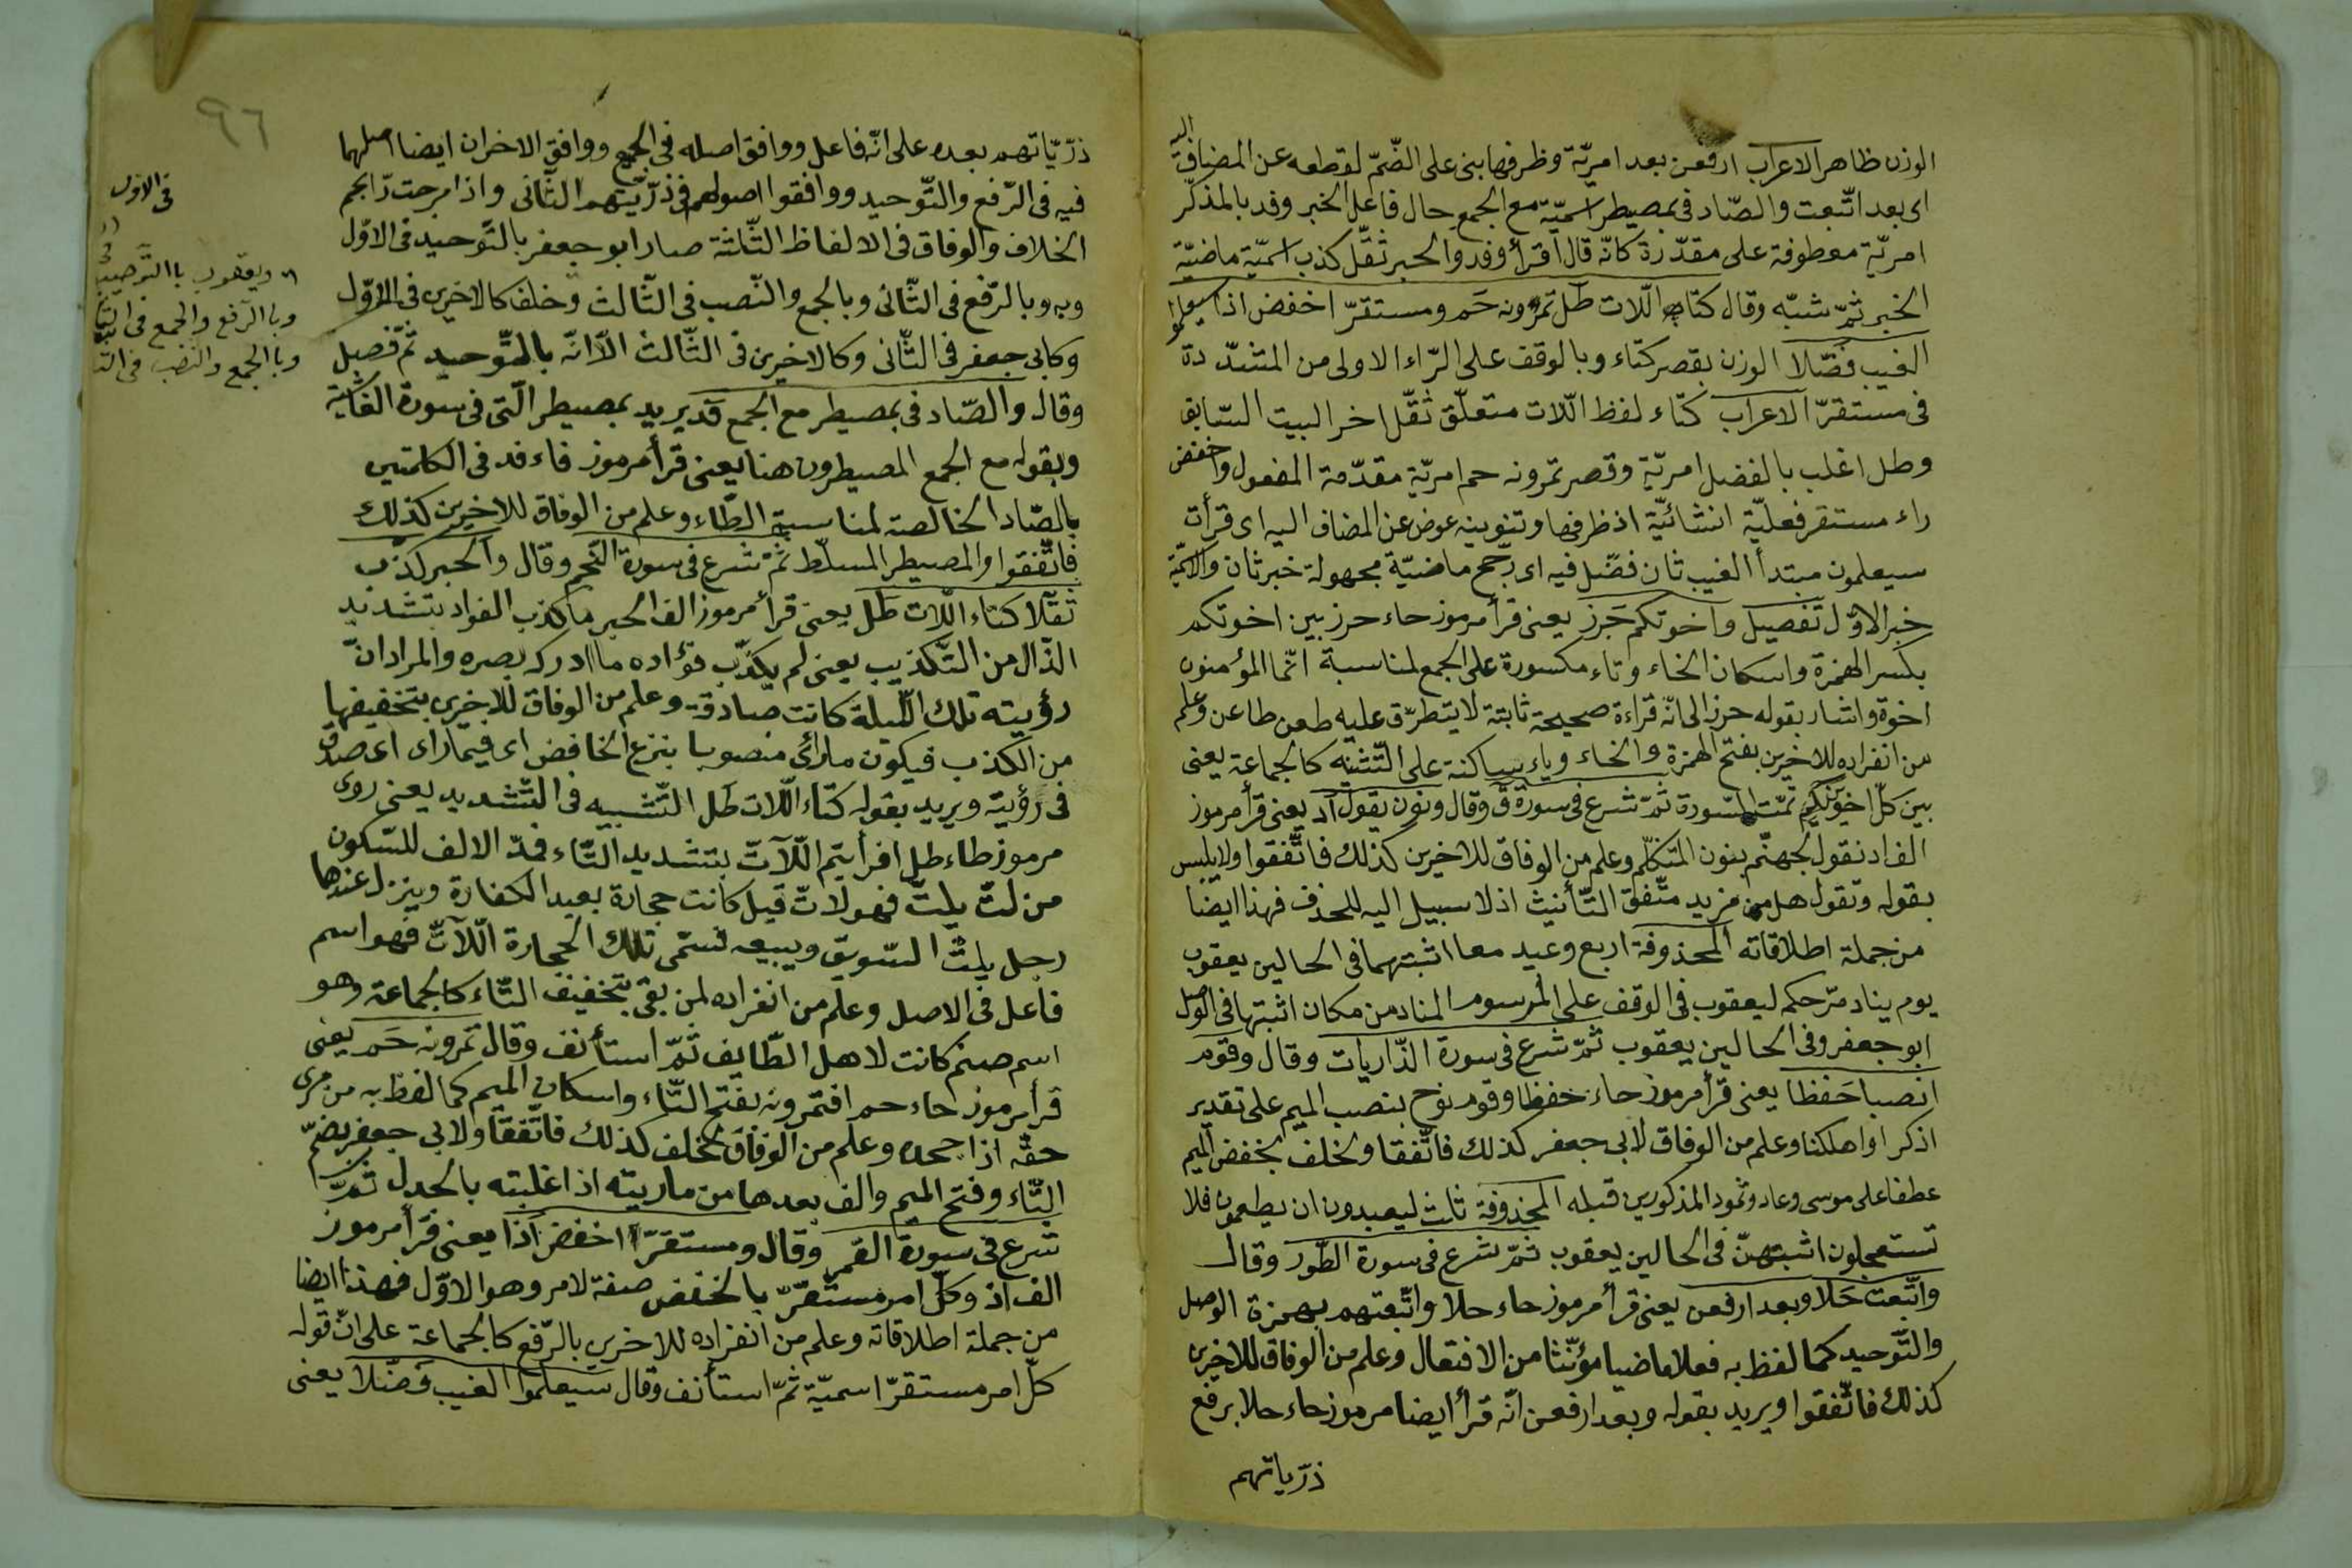 الوزن ظاهر الاعراب ارفعن بعد امريّة وظرفها بنى على الضّمّ لقطعه عن المضاف اليه
اى بعد اتّبعت والصّاد فى بمصيطر اسميّة مع الجمع حال فاعل الخبر وفد بالمذكّر
امريّة معطوفة على مقدّرة كانّه قال اقرأ وفد والحبر ثقّل كذب اسميّة ماضيّة
الخبر ثمّ شبّه وقال كتاء اللّات طل تمرونه حم ومستقرّ اخفض اذا سيعلموا
الغيب فضّلا الوزن بقصر كتاء وبالوقف على الرّاء الاولى من المشدّدة
فى مستقرّ الاعراب كتاء لفظ اللّات متعلّق ثقّل اخر البيت السّابق
وطل اغلب بالفضل امريّة وقصر تمرونه حم امريّة مقدّمة المفعول واخفض
راء مستقر فعليّة انشائيّة اذ ظرفها وتنوينه عوض عن المضاف اليه اى قرأت
سيعلمون مبتدأ الغيب ثان فضّل فيه اى رجح ماضيّة مجهولة خبر ثان والاسميّة
خبر الاوّل تفصيل واخوتكم حرز يعنى قرأ مرموز حاء حرز بين اخوتكم
بكسر الهمزة واسكان الخاء وتاء مكسورة على الجمع لمناسبة انّما المؤمنون
اخوة واشار بقوله حرز الى انّه قراءة صحيحة ثابتة لا يتطرّق عليه طعن طاعن وعلم
من انفراده للاخرين بفتح الهمزة والخاء وياء ساكنة على التّثنيه كالجماعة يعنى
بين كلّ اخويكم تمّت السّورة ثمّ شرع فى سورة ق وقال ونون يقول اد يعنى قرأ مرموز
الف اد نقول لجهنّم بنون المتكلّم وعلم من الوفاق للاخرين كذلك فاتّفقوا ولا يلبس
بقوله وتقول هل من مزيد متّفق التّأنيث اذ لا سبيل اليه للحذف فهذا ايضا
من جملة اطلاقاته المحذوفة اربع وعيد معا اثبتهما فى الحالين يعقوب
يوم يناد مرّ حكمه ليعقوب فى الوقف على المرسوم المناد من مكان اثبتها فى الوصل
ابو جعفر وفى الحالين يعقوب ثمّ شرع فى سورة الذّاريات وقال وقوم
انصبا حفظا يعنى قرأ مرموز حاء حفظا وقوم نوح بنصب الميم على تقدير
اذكر او اهلكنا وعلم من الوفاق لابى جعفر كذلك فاتّفقا ولخلف بخفض الميم
عطفا على موسى وعاد وثمود المذكورين قبله المحذوفة ثلث ليعبدون ان يطعمون فلا
تستعجلون اثبتهنّ فى الحالين يعقوب ثمّ شرع فى سورة الطّور وقال
واتّبعت حلا وبعد ارفعن يعنى قرأ مرموز حاء حلا واتّبعتهم بهمزة الوصل
والتّوحيد كما لفظ به فعلا ماضيا مؤنّثا من الافتعال وعلم من الوفاق للاخرين
كذلك فاتّفقوا ويريد بقوله وبعد ارفعن انّه قرأ ايضا مرموز حاء حلا برفع
ذرّياتهم
٩٦
ذرّيّاتهم بعده على انّه فاعل ووافق اصله فى الجمع ووافق الاخران ايضا اصلهما
فيه فى الرّفع والتّوحيد ووافقوا اصولهم فى ذرّيّتهم الثّانى واذا مرجت رّابجم
الخلاف والوفاق فى الالفاظ الثّلثة صار ابو جعفر بالتّوحيد فى الاوّل
وبه وبالرّفع فى الثّانى وبالجمع والنّصب فى الثّالث وخلف كالاخرى فى الاوّل
وكابى جعفر فى الثّانى وكالاخرين فى الثّالث الاّ انّه بالتّوحيد ثمّ فصل
وقال والصّاد فى بمصيطر مع الجمع قد يريد بمصيطر الّتى فى سورة الغاشية
وبقوله مع الجمع المصيطرون هنا يعنى قرأ مرموز فاء فد فى الكلمتين
بالصّاد الخالصة لمناسبة الطّاء وعلم من الوفاق للاخرين كذلك
فاتّفقوا والمصيطر المسلّط ثمّ شرع فى سورة النّجم وقال والحبر كذّب
ثقّلا كتاء اللّات طل يعنى قرأ مرموز الف الحبر ما كذب الفواد بتشديد
الذّال من التّكذيب يعنى لم يكذّب فؤاده ما ادركه بصره والمراد انّ
رؤيته تلك اللّيلة كانت صادقة وعلم من الوفاق للاخرين بتخفيفها
من الكذب فيكون ما رأى منصوبا بنزع الخافض اى فيما راى اى صدق
فى رؤية ويريد بقوله كتاء اللّات طل التّشبيه فى التّشديد يعنى روى
مرموز طاء طل افرأيتم اللّآتّ بتشديد التّاء فمدّ الالف للسّكون
من لتّ يلتّ فهو لاتّ قيل كانت حجارة بعيد الكفارة وينزل عندها
رجل يلتّ السّويق ويبيعه تسمّى تلك الحجارة اللّآتّ فهو اسم
فاعل فى الاصل وعلم من انفراده لمن بقى بتخفيف التّاء كالجماعة وهو
اسم صنم كانت لاهل الطّايف ثمّ استأنف وقال تمرونه حم يعنى
قرأ مرموز حاء حم افتمرونه بفتح التّاء واسكان الميم كما لفظ به من مرى
حقّه اذا جحده وعلم من الوفاق لخلف كذلك فاتّفقا ولابى جعفر بضمّ
التّاء وفتح الميم والف بعدها من ماريته اذا غلبته بالجدل ثمّ
شرع فى سورة القمر وقال ومستقرّ اخفض اذا يعنى قرأ مرموز
الف اذ وكلّ امر مستقرّ بالخفض صفة لامر وهو الاوّل فهذا ايضا
من جملة اطلاقاته وعلم من انفراده للاخرين بالرّفع كالجماعة على انّ قوله
كلّ امر مستقرّ اسميّة ثمّ استأنف وقال سيعلموا الغيب فضّلا يعنى
فى الاول
ويعقوب باالتّوحيد
وباالرّفع والجمع فى
وباالجمع والنّصب فى